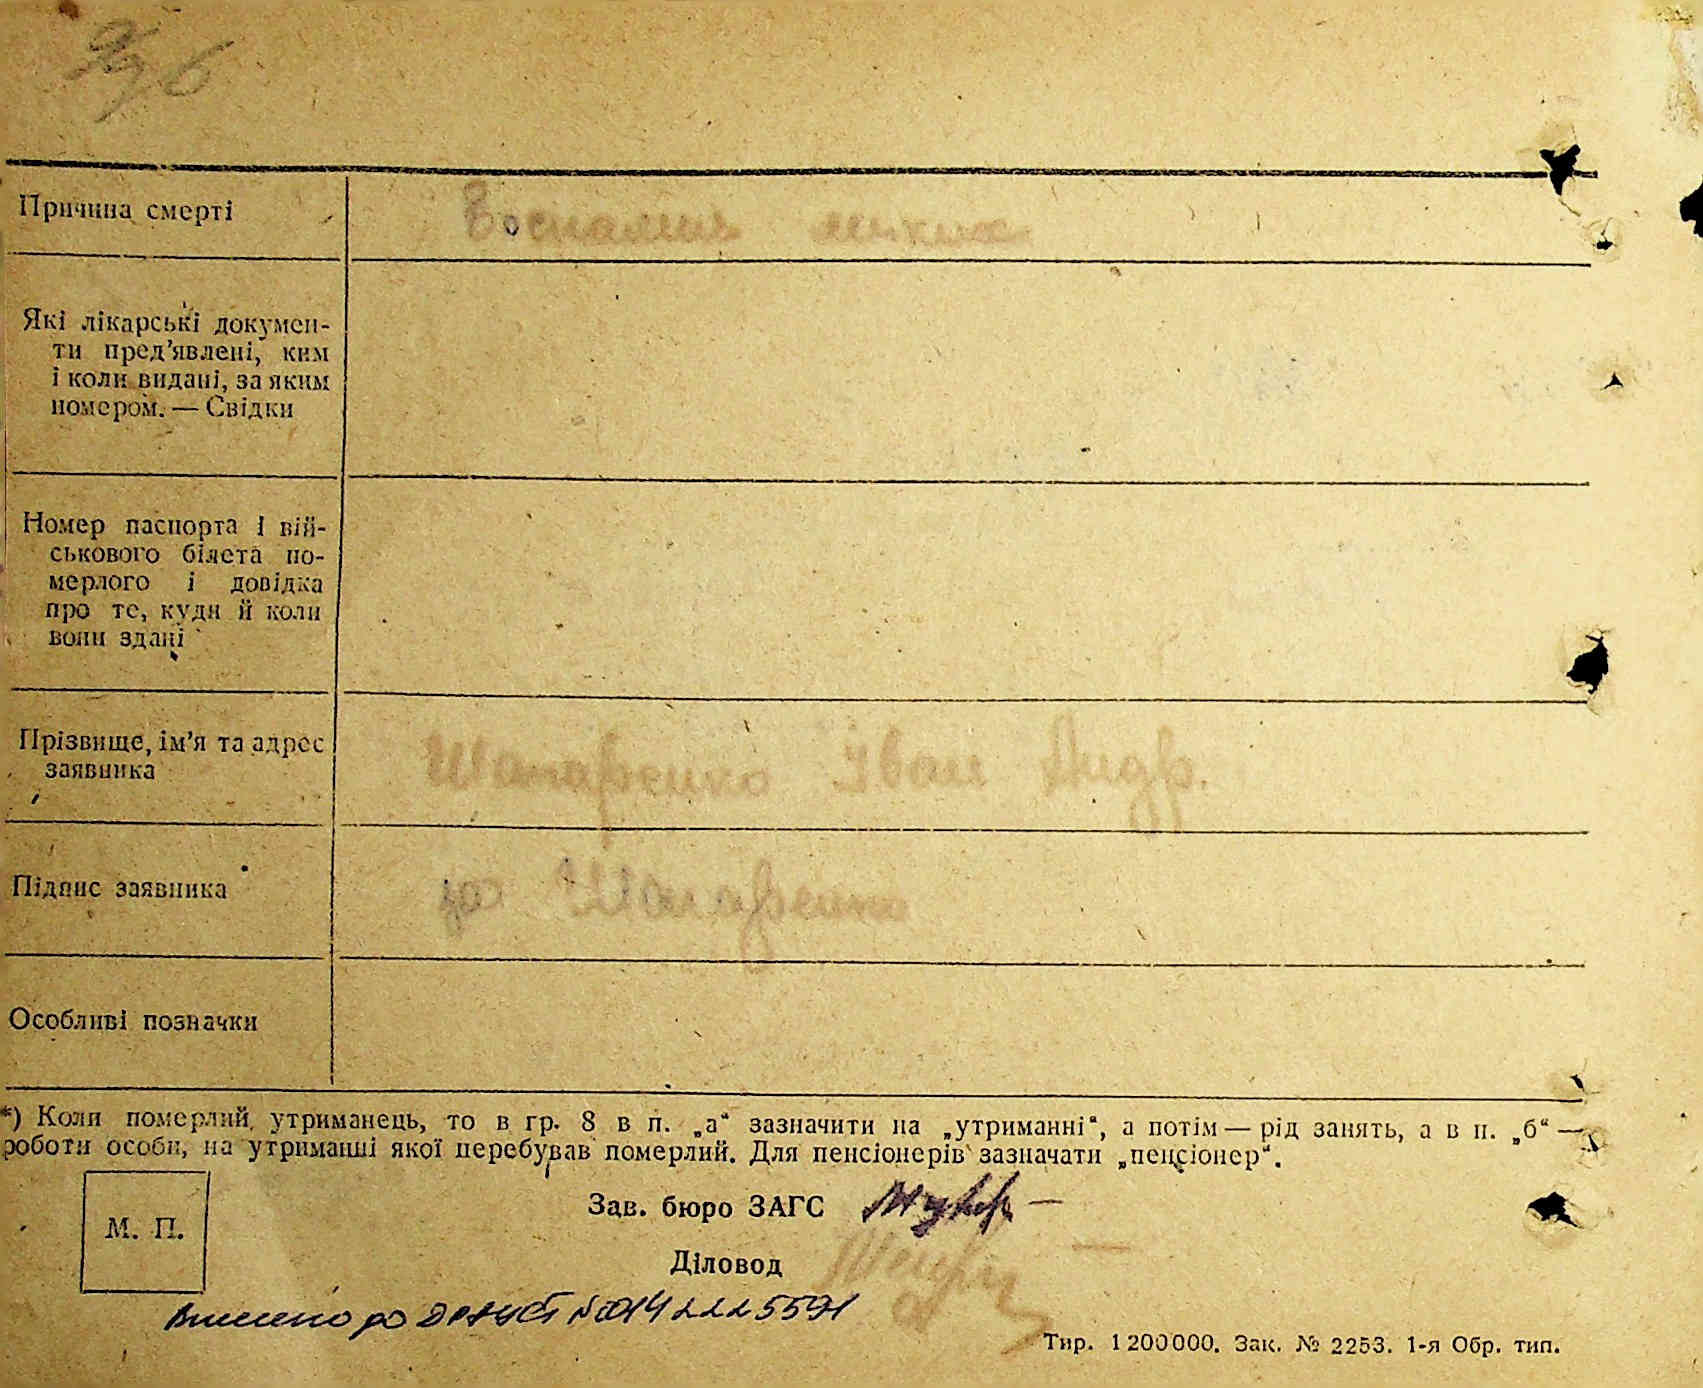 Причина смерті Воспалинь легких
Які лікарські докумен-
ти пред’явлені, ким
і коли видані, за яким
номером. — Свідки
Номер паспорта і вій-
ськового білета по-
мерлого і довідка
про те, куди й коли
вони здані
Прізвище, ім’я та адрес
заявника
Шапаренко Іван Андр.
Підпис заявника за Шапаренко
Особливі позначки
*) Коли померлий утриманець, то в гр. 8 в п. „а“ зазначити на „утриманні“, а потім — рід занять, а в п. „б“ —
роботи особи, на утриманні якої перебував померлий. Для пенсіонерів зазначати „пенсіонер“.
М. П.
Зав. бюро ЗАГС
Діловод
Внесено до ДРАЦСГ №0142225591
Тир. 1200000. Зак. № 2253. 1-я Обр. тип.